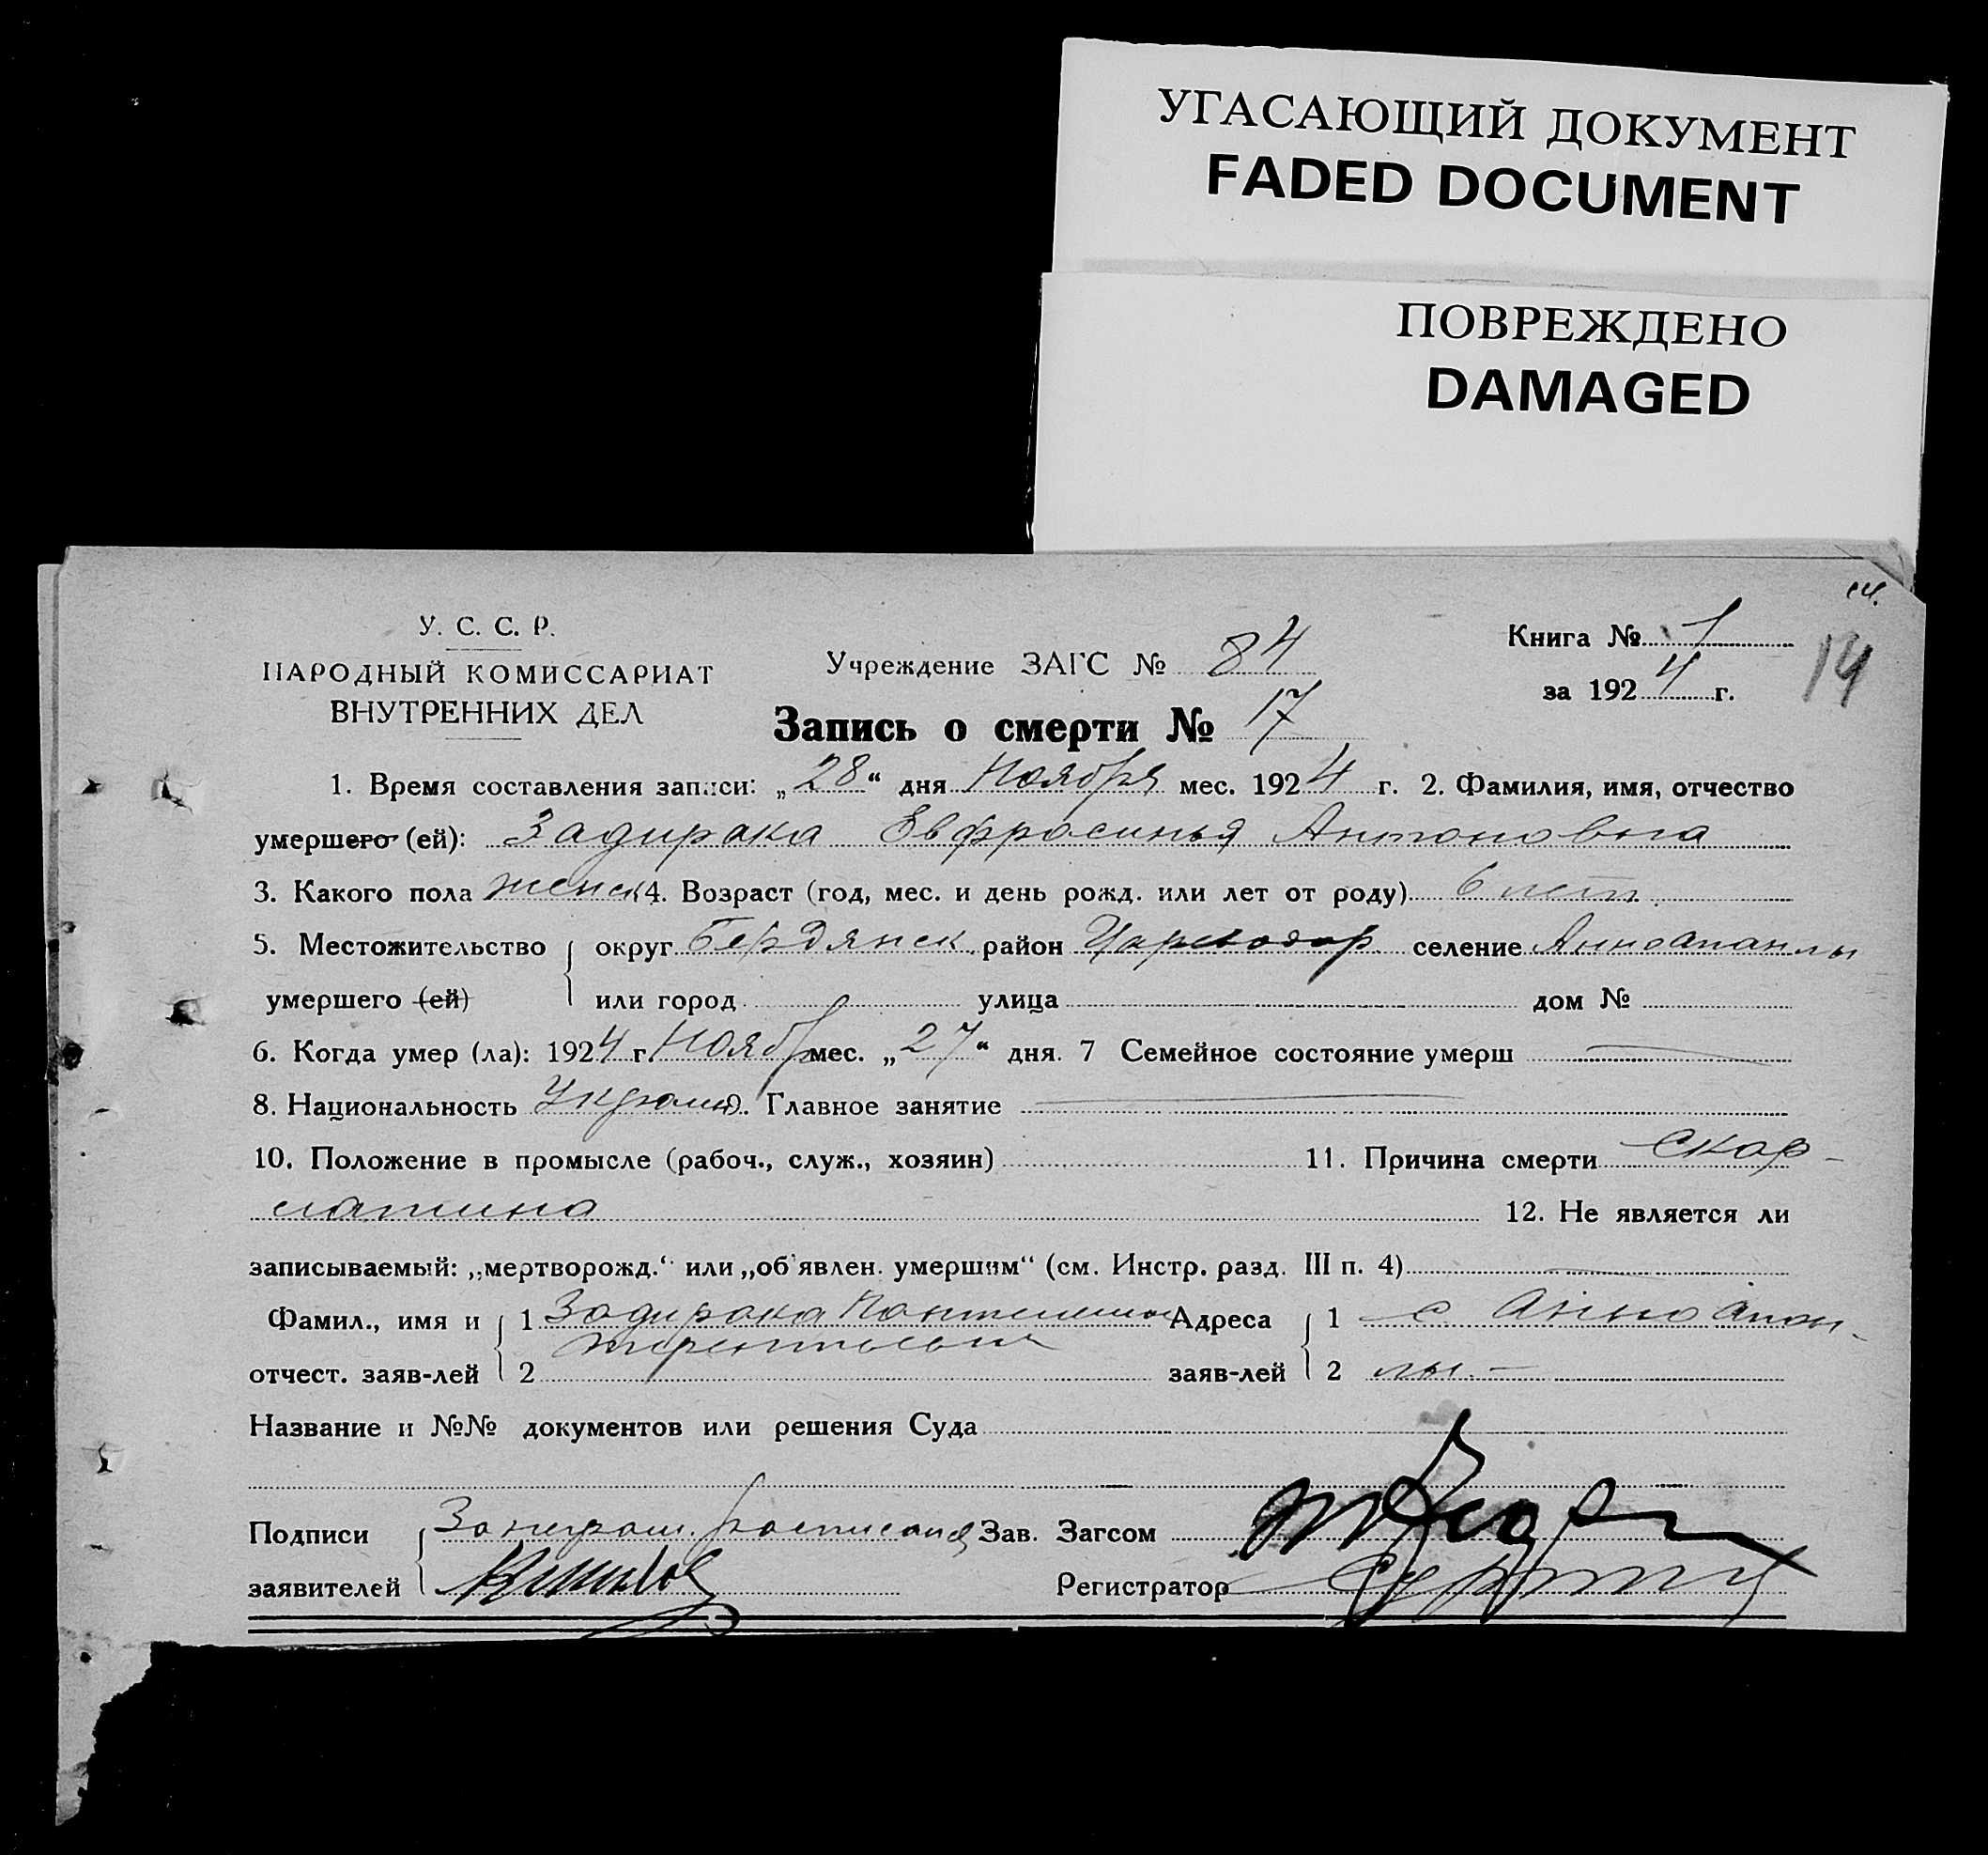 УГАСАЮЩИЙ ДОКУМЕНТ
FADED DOCUMENT
ПОВРЕЖДЕНО
DAMAGED
14.
14
У. С. С. Р.
НАРОДНЫЙ КОМИССАРИАТ
ВНУТРЕННИХ ДЕЛ
Учреждение ЗАГС № 84
Книга № 1
за 1924 г.
Запись о смерти № 17
1. Время составления записи: „28“ дня Ноября мес. 1924 г. 2. Фамилия, имя, отчество
умершего (ей): Задирака Евфросинья Антоновна
3. Какого пола женск 4. Возраст (год, мес. и день рожд. или лет от роду) 6 лет.
5. Местожительство округ Бердянск район Цареводар селение Анноапанлы
умершего (ей) или город улица дом №
6. Когда умер (ла): 1924 г. Ноябр мес. „27“ дня. 7 Семейное состояние умерш —
8. Национальность Украин 9. Главное занятие —
10. Положение в промысле (рабоч., служ., хозяин) 11. Причина смерти Скар-
латина 12. Не является ли
записываемый: „мертворожд.“ или „об'явлен. умершим“ (см. Инстр. разд. III п. 4) —
Фамил., имя и 1 Задирака Адреса 1 с. Анно Апан-
отчест. заяв-лей 2 заяв-лей 2 лы. —
Название и №№ документов или решения Суда
Подписи За неграм. расписался Зав. Загсом
заявителей Регистратор